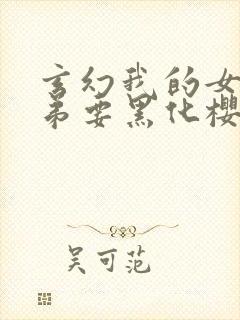 玄幻我的女
弟要黑化樱
吴可范